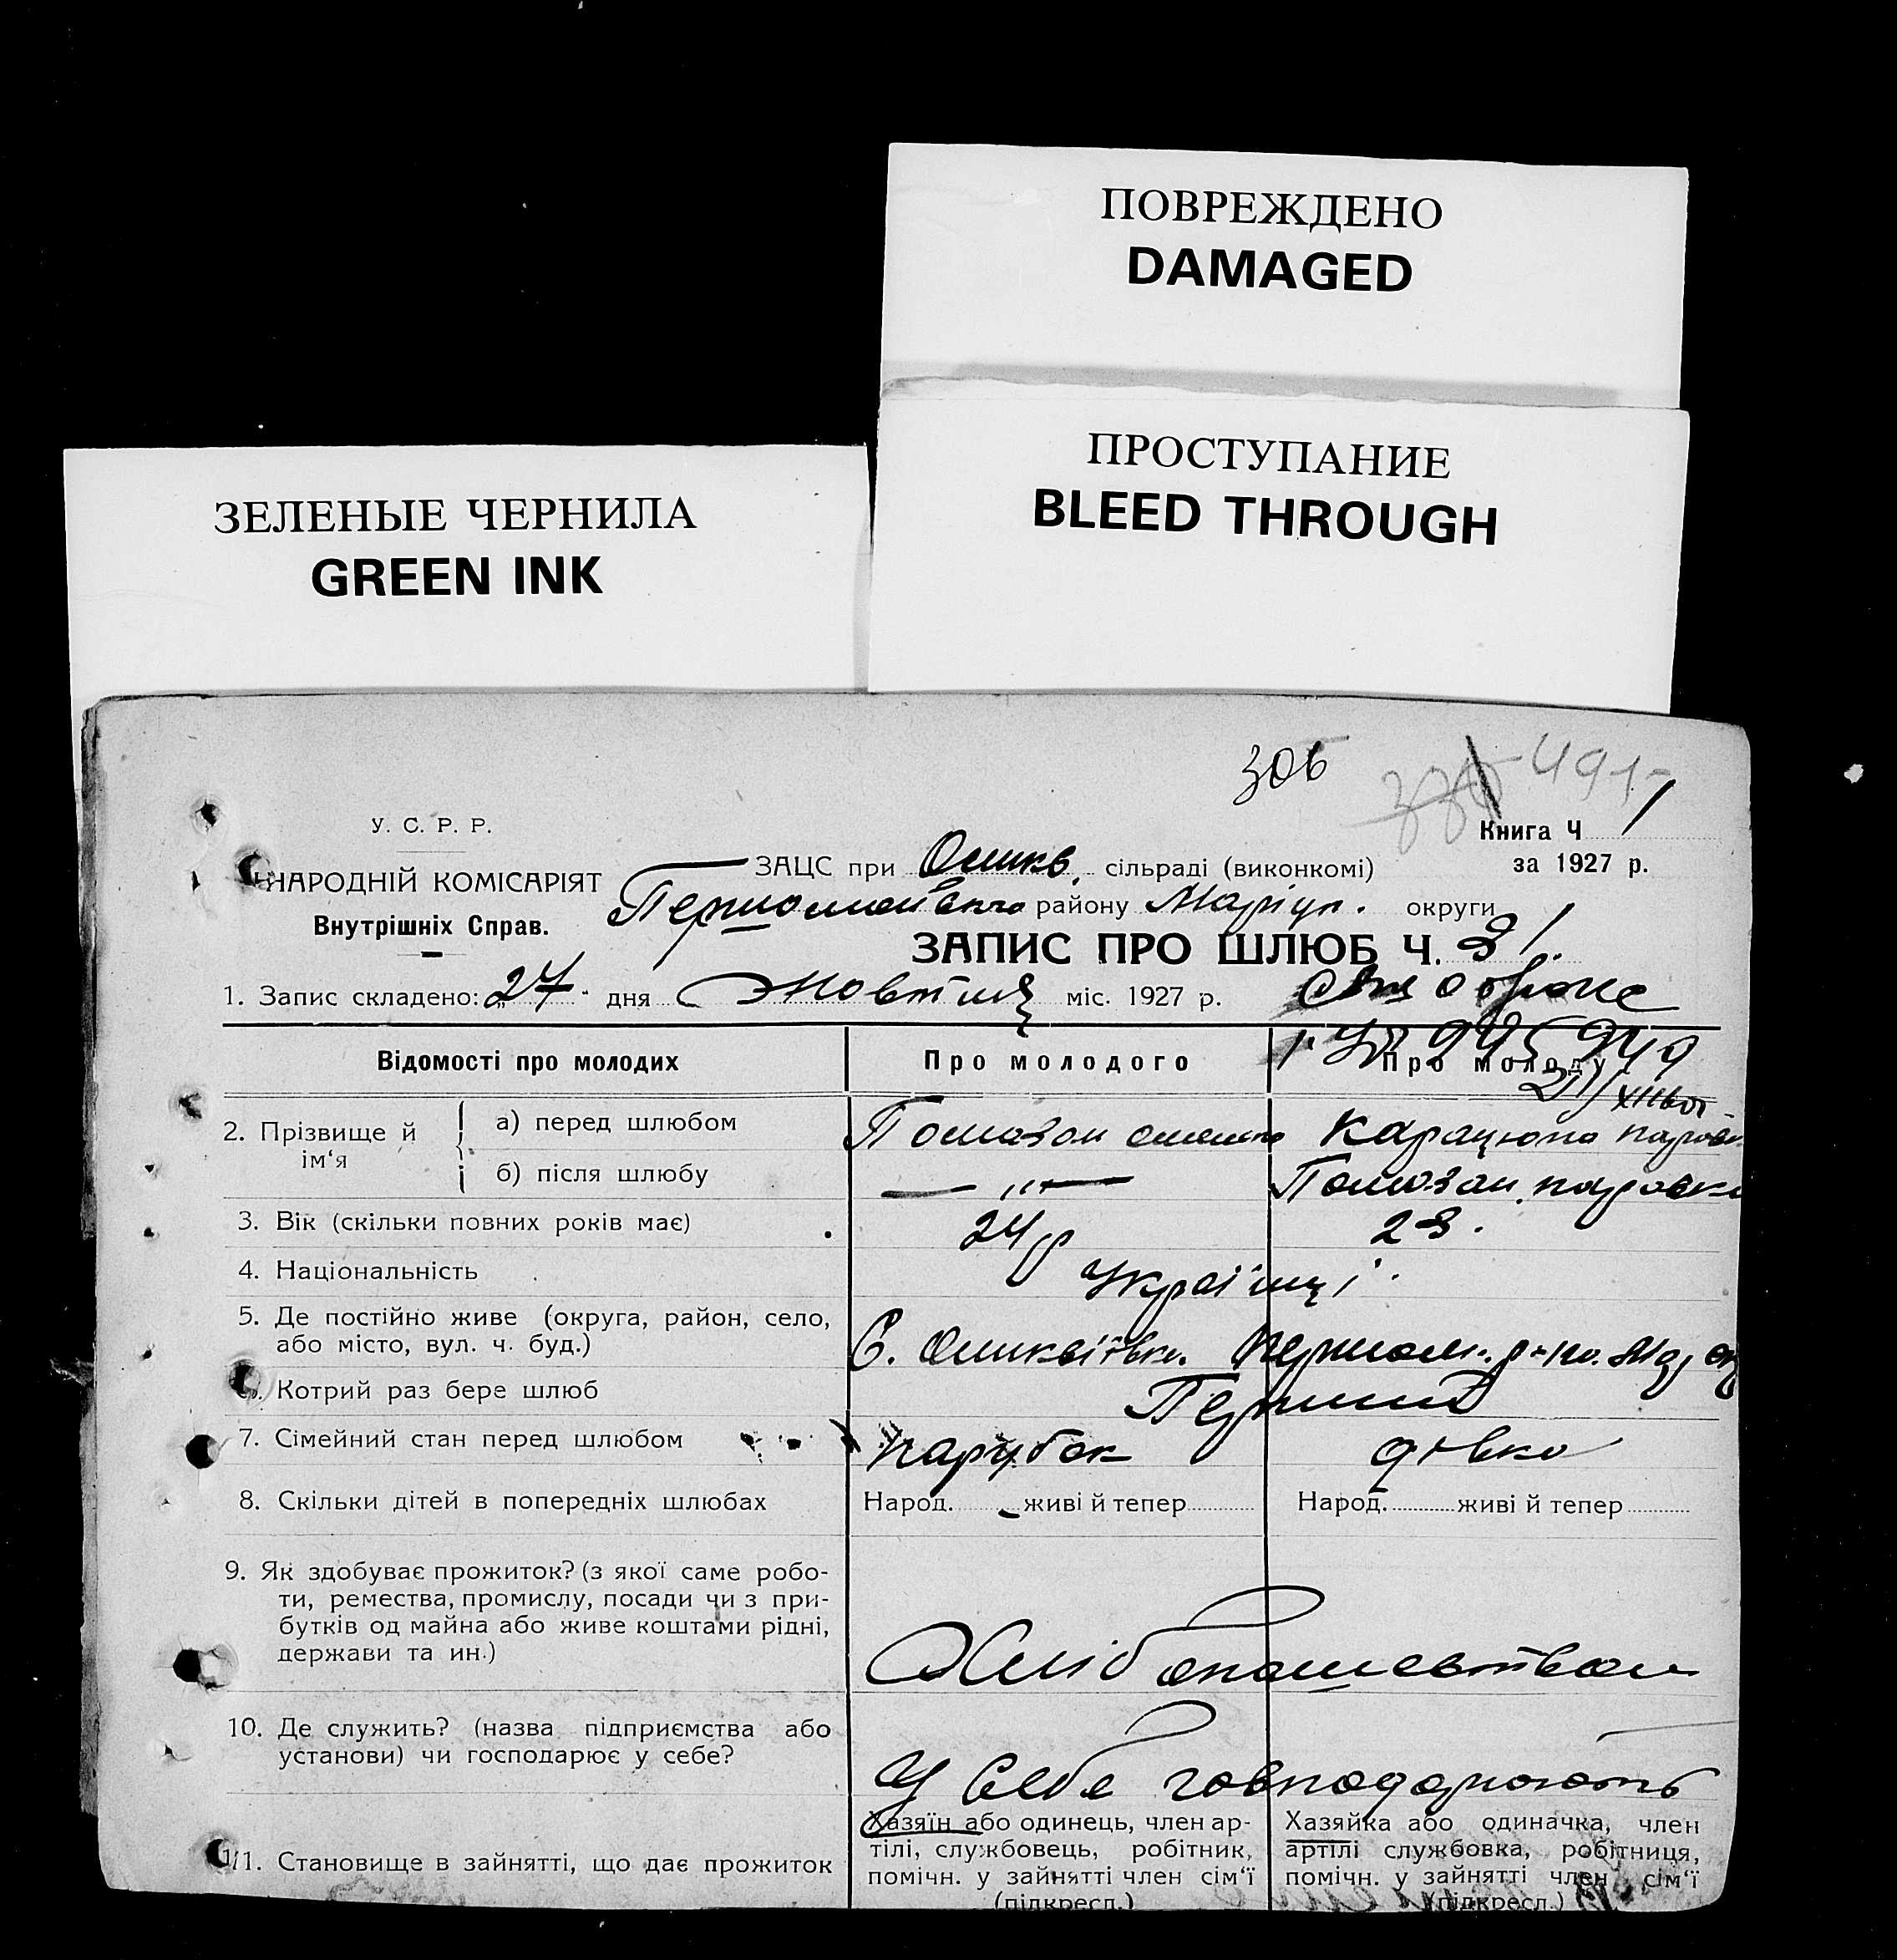 ПОВРЕЖДЕНО
DAMAGED
ПРОСТУПАНИЕ
BLEED THROUGH
ЗЕЛЕНЫЕ ЧЕРНИЛА
GREEN INK
306
491
У. С. Р. Р.
НАРОДНІЙ КОМІСАРІЯТ
Внутрішніх Справ.
Книга Ч 1
за 1927 р.
ЗАЦС при сільраді (виконкомі)
Першомайвкго району Маріуп. округи
ЗАПИС ПРО ШЛЮБ Ч. 31.
1. Запис складено: 27 дня Жовтня міс. 1927 р.
Відомості про молодих
Про молодого
Про молоду
2. Прізвище й ім‘я
а) перед шлюбом
Помазан
Карацюпа
б) після шлюбу
— " —
Помазан
3. Вік (скільки повних років має)
24 р
23.
4. Національність
Українці.
5. Де постійно живе (округа, район, село,
або місто, вул. ч. буд.)
С. Першом. р-ну.
Котрий раз бере шлюб
Перший
7. Сімейний стан перед шлюбом
парубок
дівка
8. Скільки дітей в попередніх шлюбах
Народ. живі й тепер
Народ. живі й тепер
9. Як здобуває прожиток? (з якої саме робо-
ти, ремества, промислу, посади чи з при-
бутків од майна або живе коштами рідні,
держави та ин.)
Хлібопашевством
10. Де служить? (назва підприємства або
установи) чи господарює у себе?
У себе говподарюють
11. Становище в зайнятті, що дає прожиток
Хазяїн або одинець, член ар-
тілі, службовець, робітник,
помічн. у зайнятті член сім‘ї
(підкресл.)
Хазяйка або одиначка, член
артілі службовка, робітниця,
помічн. у зайнятті член сім‘ї
(підкресл.)